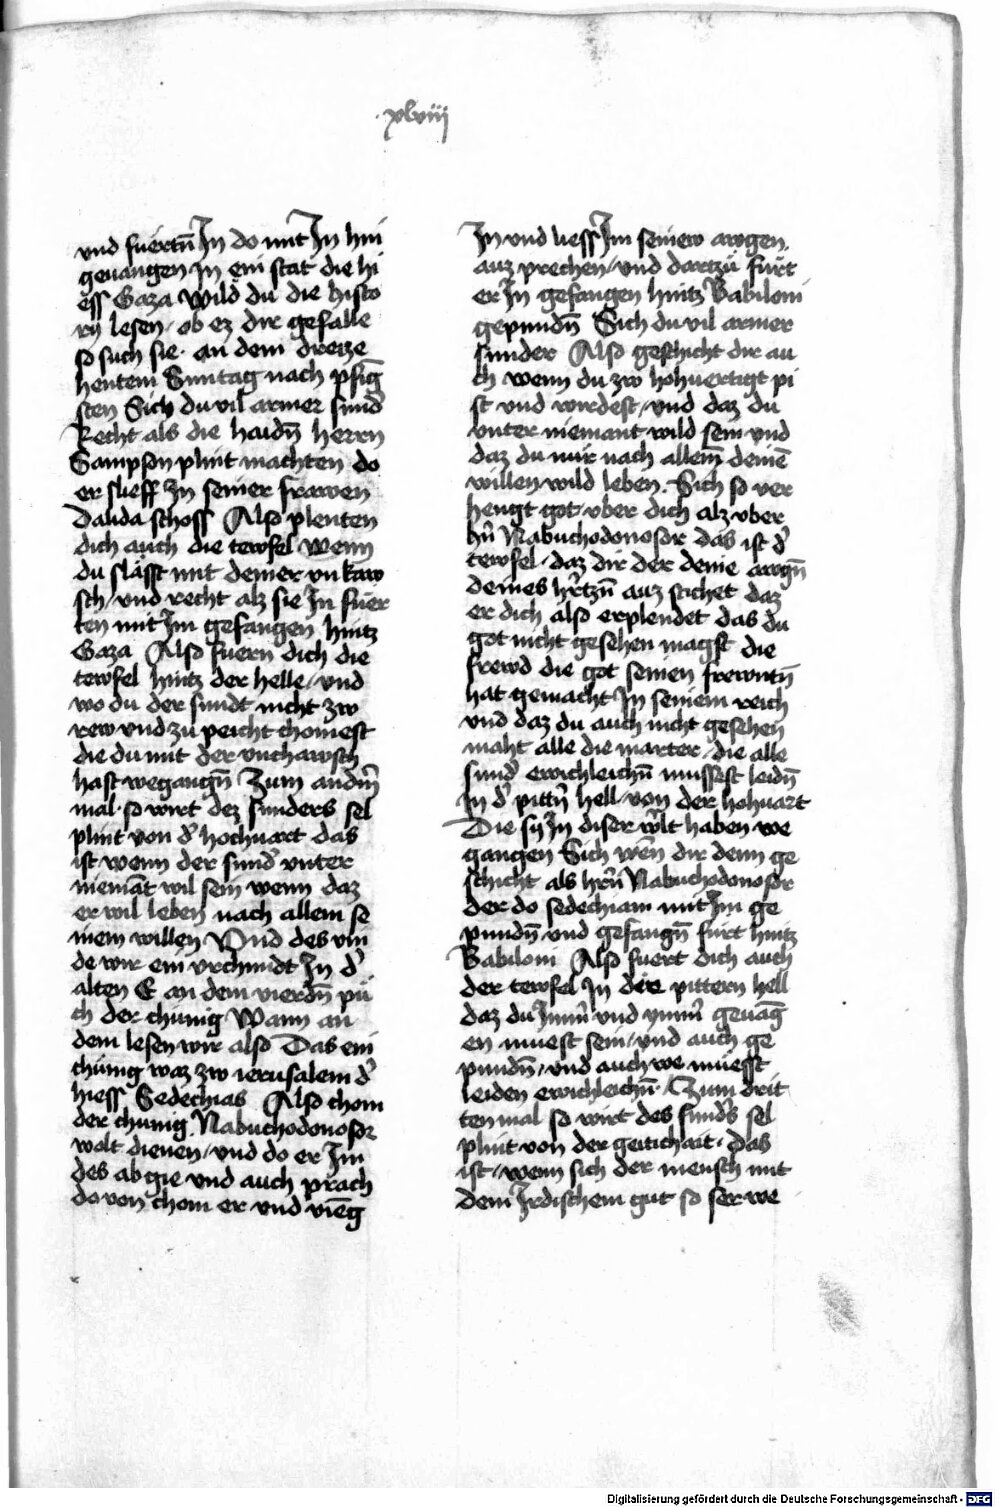 xlviii
vnd fuertn̄ In do mit In hin
geuangen in ein stat die hi
ess Gaza wild du die histo
ry lesen / ob ez dir gefalle
so such sie · an dem dreitze
hentem Sunntag nach pfīg
sten Sich du vil armer sund̾
Recht als die haidn̄ herrn
Sampson plint machten do
er slieff In seiner frawen
Dalida schoss Also plenten
dich auch die tewfel · wenn
du slåfst mit deiner vnkaw
sch / vnd recht alz sie In fuer
ten mit Im gefangen hintz
Gaza Also fuern dich die
tewfel hintz der helle / vnd
wo du der sundt nicht zw
rew vnd zu peicht chomest
die du mit der vnchawsch
hast wegangn̄ Zum andn̄
mal · so wirt dez sunders sel
plint von d̾ hochuart das
ist wenn der sund̾ vnter
niemāt wil sein wenn daz
er wil leben nach allem se
inem willen Vnd des vin
de wir ein vrchundt In d̾
alten E an dem vierdn̄ pů
ch der chunig Wann an
dem lesen wir also Das ein
chunig waz zw ierusalem d̾
hiess Sedechias Also chom
der chunig Nabuchodonosor
wolt dienen / vnd do er Im
des ab gie vnd auch prach
do von chom er vnd vieng
In vnd liess Im seinew awgen
auz prechen / vnd dartzů fürt
er In gefangen hintz Babiloni
gepundn̄ Sich du vil armer
sunder Also geschicht dir au
ch wenn du zw hohuertigt pi
st vnd wirdest / vnd daz du
vnter niemant wild sein vnd
daz du nur nach allem deinē
willen wild leben. Sich so ver
hengt got vber dich alz vber
hr̄n Nabuchodonosor das ist d̾
tewfel · daz dir der deine awgn̄
deines hr̄tzn̄ auz stichet daz
er dich also erplendet das du
got nicht gesehen magst die
frewd die got seinen frewntn̄
hat gemacht In seinem reich
vnd daz du auch nicht gesehen
maht alle die marter / die alle
sund̾ ewichleichn̄ mussest leidn̄
In d̾ pittn̄ hell / von der hohuart
Die sy In diser w̾lt haben we
gangen Sich wēn dir denn ge
schicht als hr̄n Nabuchodonosor
der do sedechiam mit Im ge
pundn̄ vnd gefangn̄ fürt hintz
Babiloni Also fuert dich auch
der tewfel In die pittern hell
daz du Im̄m̾ vnd ymm̾ geuāg
en muest sein / vnd auch ge
pundn̄ / vnd auch we müesst
leiden ewichleichn̄ / Zum drit
ten mal so wirt des sund̾s sel
plint von der geitichait · Das
ist / wenn sich der mensch mit
dem Irdischem gut so ser we
Digitalisierung gefördert durch die Deutsche Forschungsgemeinschaft - DFG